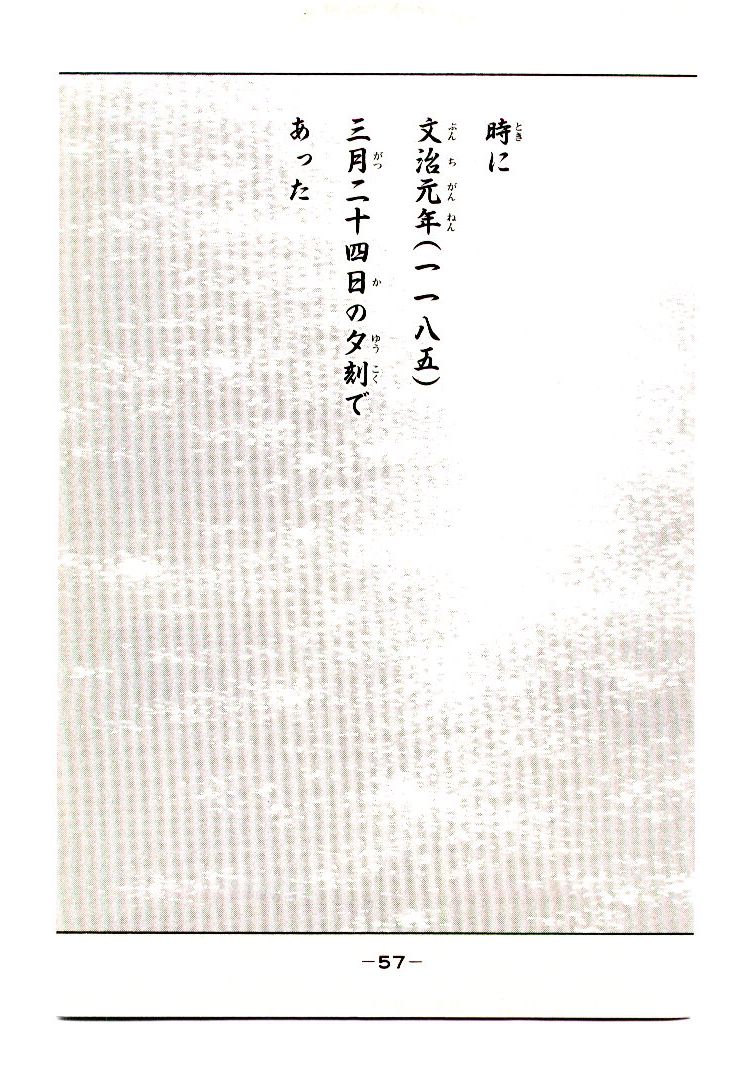 時に
文治元年(一一八五)
三月二十四日の夕刻で
あった
-57-